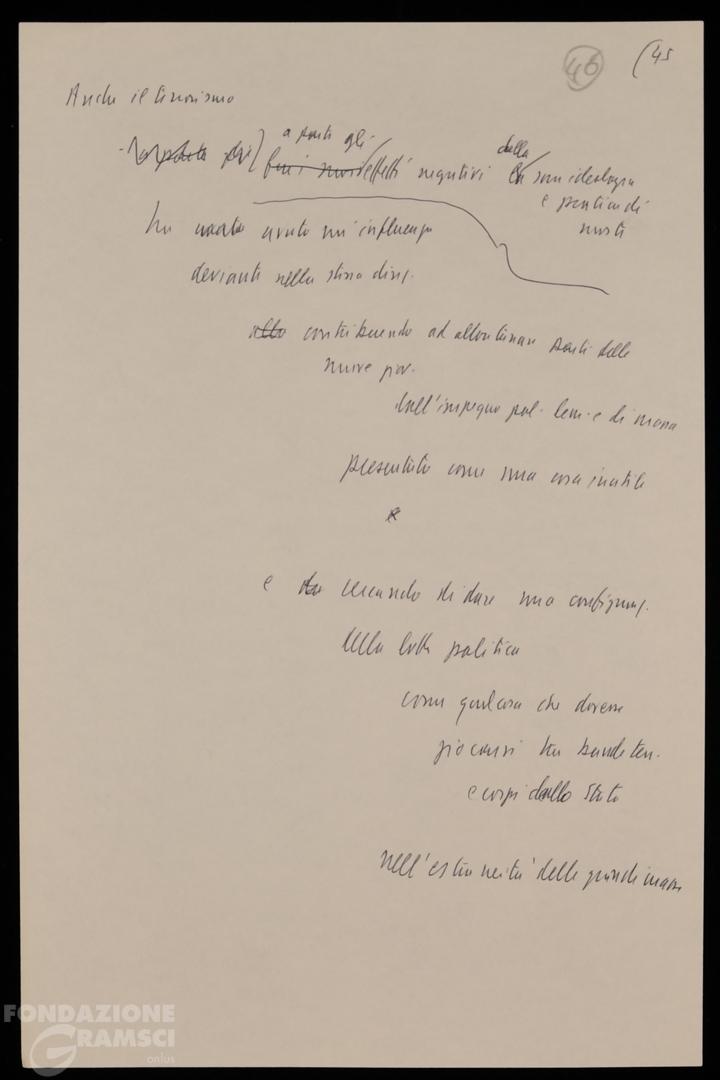 46
(45
Anche il terrorismo
a parte gli
effetti negativi della sua ideologia
e pratica di
morte
ha avuto un'influenza
deviante nella stessa direz.
contribuendo ad allontanare parti delle
nuove gior.
dall'impegno pol. dem. e di massa
presentato come una cosa inutile
e cercando di dare una configuraz.
della lotta politica
come qualcosa che dovesse
giocarsi tra bande terr.
e corpi dello Stato
nell'estraneità delle grandi masse
FONDAZIONE
GRAMSCI
onlus